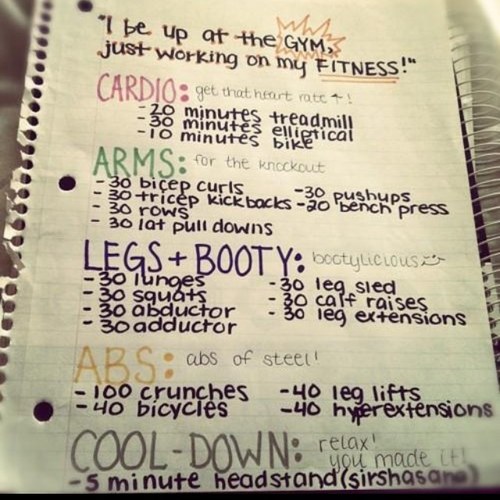 "I be up at the GYM,
just working on my FITNESS!"
CARDIO: get that heart rate ↑!
- 20 minutes treadmill
- 30 minutes elliptical
- 10 minutes bike
ARMS: for the knockout
- 30 bicep curls
- 30 tricep kickbacks
- 30 rows
- 30 lat pull downs
- 30 pushups
- 20 bench press
LEGS + BOOTY: bootylicious
- 30 lunges
- 30 squats
- 30 abductor
- 30 adductor
- 30 leg sled
- 30 calf raises
- 30 leg extensions
ABS: abs of steel!
- 100 crunches
- 40 bicycles
- 40 leg lifts
- 40 hyperextensions
COOL-DOWN: relax!
you made it!
- 5 minute headstand (sirshasana)